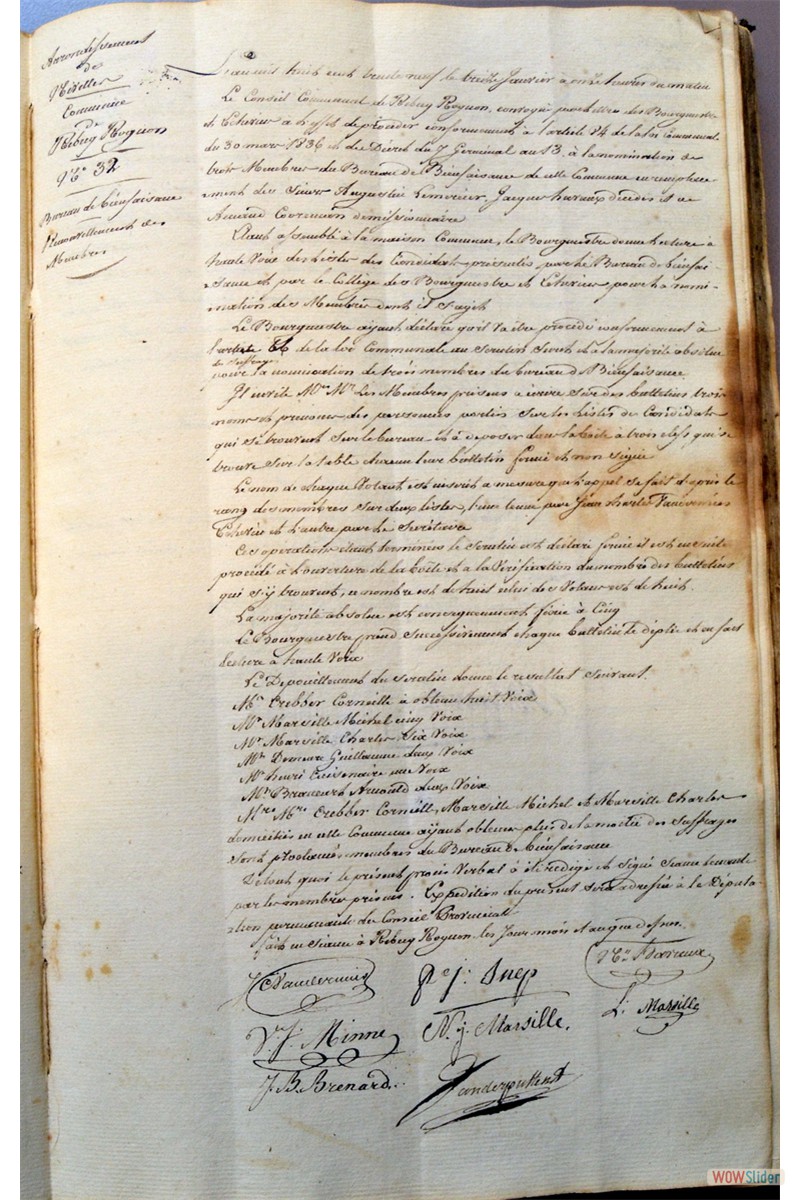 Arrondissement
de
Nivelles
Commune
de
Rebecq Rognon
N° 32
Bureau de bienfaisance
Renouvellement des
Membres
L'an mil huit cent trente neuf le treize Janvier à onze heures du matin
Le Conseil Communal de Rebecq Rognon, convoqué par lettres des Bourgmestre
et Echevins à l'effet de procéder conformément à l'article 84 de la loi Communale
du 30 mars 1836 et du Décret du 7 Germinal an 13, à la nomination de
trois Membres du Bureau de Bienfaisance de cette Commune en remplace
ment des Sieurs Augustin Lemercier, Jacques havaux décédés et
Arnaud démissionnaire
Etant assemblé à la maison Commune, le Bourgmestre donne lecture à
haute Voix des Listes des Candidats présentés par le Bureau de bienfai-
sance et par le Collège des Bourgmestre et Echevins pour la nomi-
nation des Membres dont il s'agit
Le Bourgmestre ayant déclaré qu'il va être procédé conformément à
l'article de la loi Communale au Scrutin Secret et à la majorité absolue
des suffrages
pour la nomination de trois membres du bureau de Bienfaisance
Il invite Mrs Les Membres présens à écrire sur des bulletins trois
noms et prénoms des personnes portées sur les Listes de Candidats
qui se trouvent sur le bureau et à déposer dans la boîte à trois clefs qui se
trouve sur la table bureau leur bulletin fermé et non signé
Le nom de chaque Votant est inscrit à mesure que l'appel se fait d'après le
rang des membres sur deux listes, l'une tenue par Jean Charles
Echevin et l'autre par le Secrétaire
Ces opérations étant terminées le Scrutin est déclaré fermé il est ensuite
procédé à l'ouverture de la boîte et à la Vérification du nombre des bulletins
qui s'y trouvent, ce nombre est de huit celui des Votans est de huit.
La majorité absolue est conséquemment fixée à Cinq
Le Bourgmestre prend successivement chaque bulletin le déplie et en fait
lecture à haute Voix
Le Dépouillement du scrutin donne le résultat suivant.
Mr Crebber Corneille à obtenu huit Voix
Mr Marsille Michel cinq Voix
Mr Marsille Charles Six Voix
Mr Demeure Guillaume deux Voix
Mr henri Cuisenaire une Voix
Mr Arnould deux Voix
Mrs Crebber Corneille, Marsille Michel et Marsille Charles
domiciliés en cette Commune ayant obtenu plus de la moitié des Suffrages
sont proclamés membres du Bureau de bienfaisance
De tout quoi le présent procès Verbal à été rédigé et signé séance tenante
par les membres présens. Expédition du présent sera adressée à la Députa-
tion permanente du Conseil Provincial
fait en séance à Rebecq Rognon les Jour mois et an que dessus.
Havaux
P. J. Snep
L. Marsille
V. J. Minne
N. J. Marsille.
J. B. Brenard
Vanderputtenst
WOWSlider